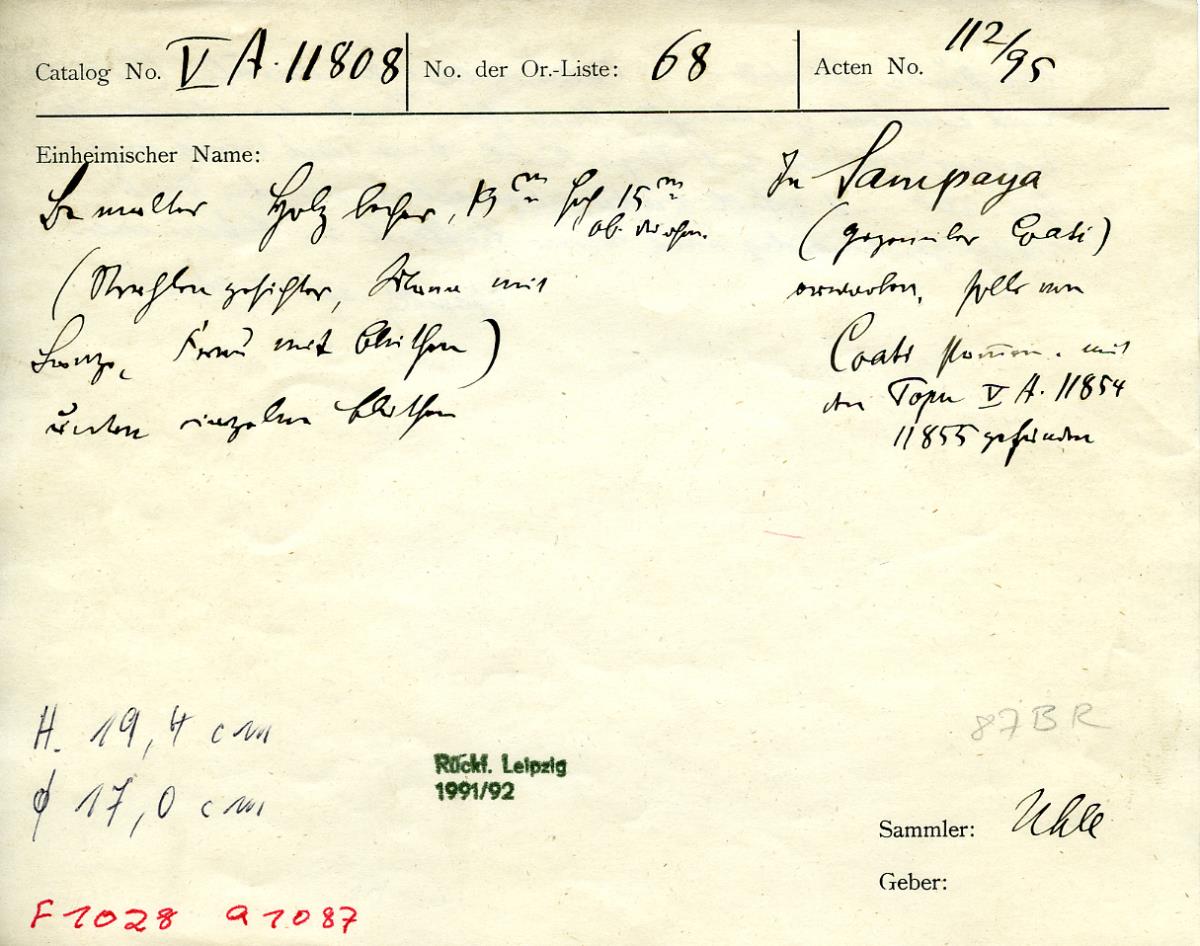 Catalog No. V A. 11808
No. der Or.-Liste: 68
Acten No. 112/95
Einheimischer Name:
Bemalter Holzbecher, hoch 15
ob.
(Strahlengesichter, Mann mit
Lanze, Frau mit Blüthen)
unten einzelne Blüthen
In Sampaya
(gegenüber Coati)
erworben, solle von
Coati stammen. mit
den Topn V A. 11854
11855 gefunden
H. 19,4 cm
φ 17,0 cm
Rückf. Leipzig
1991/92
87BR
Sammler: Uhle
Geber:
F 1028 a 1087